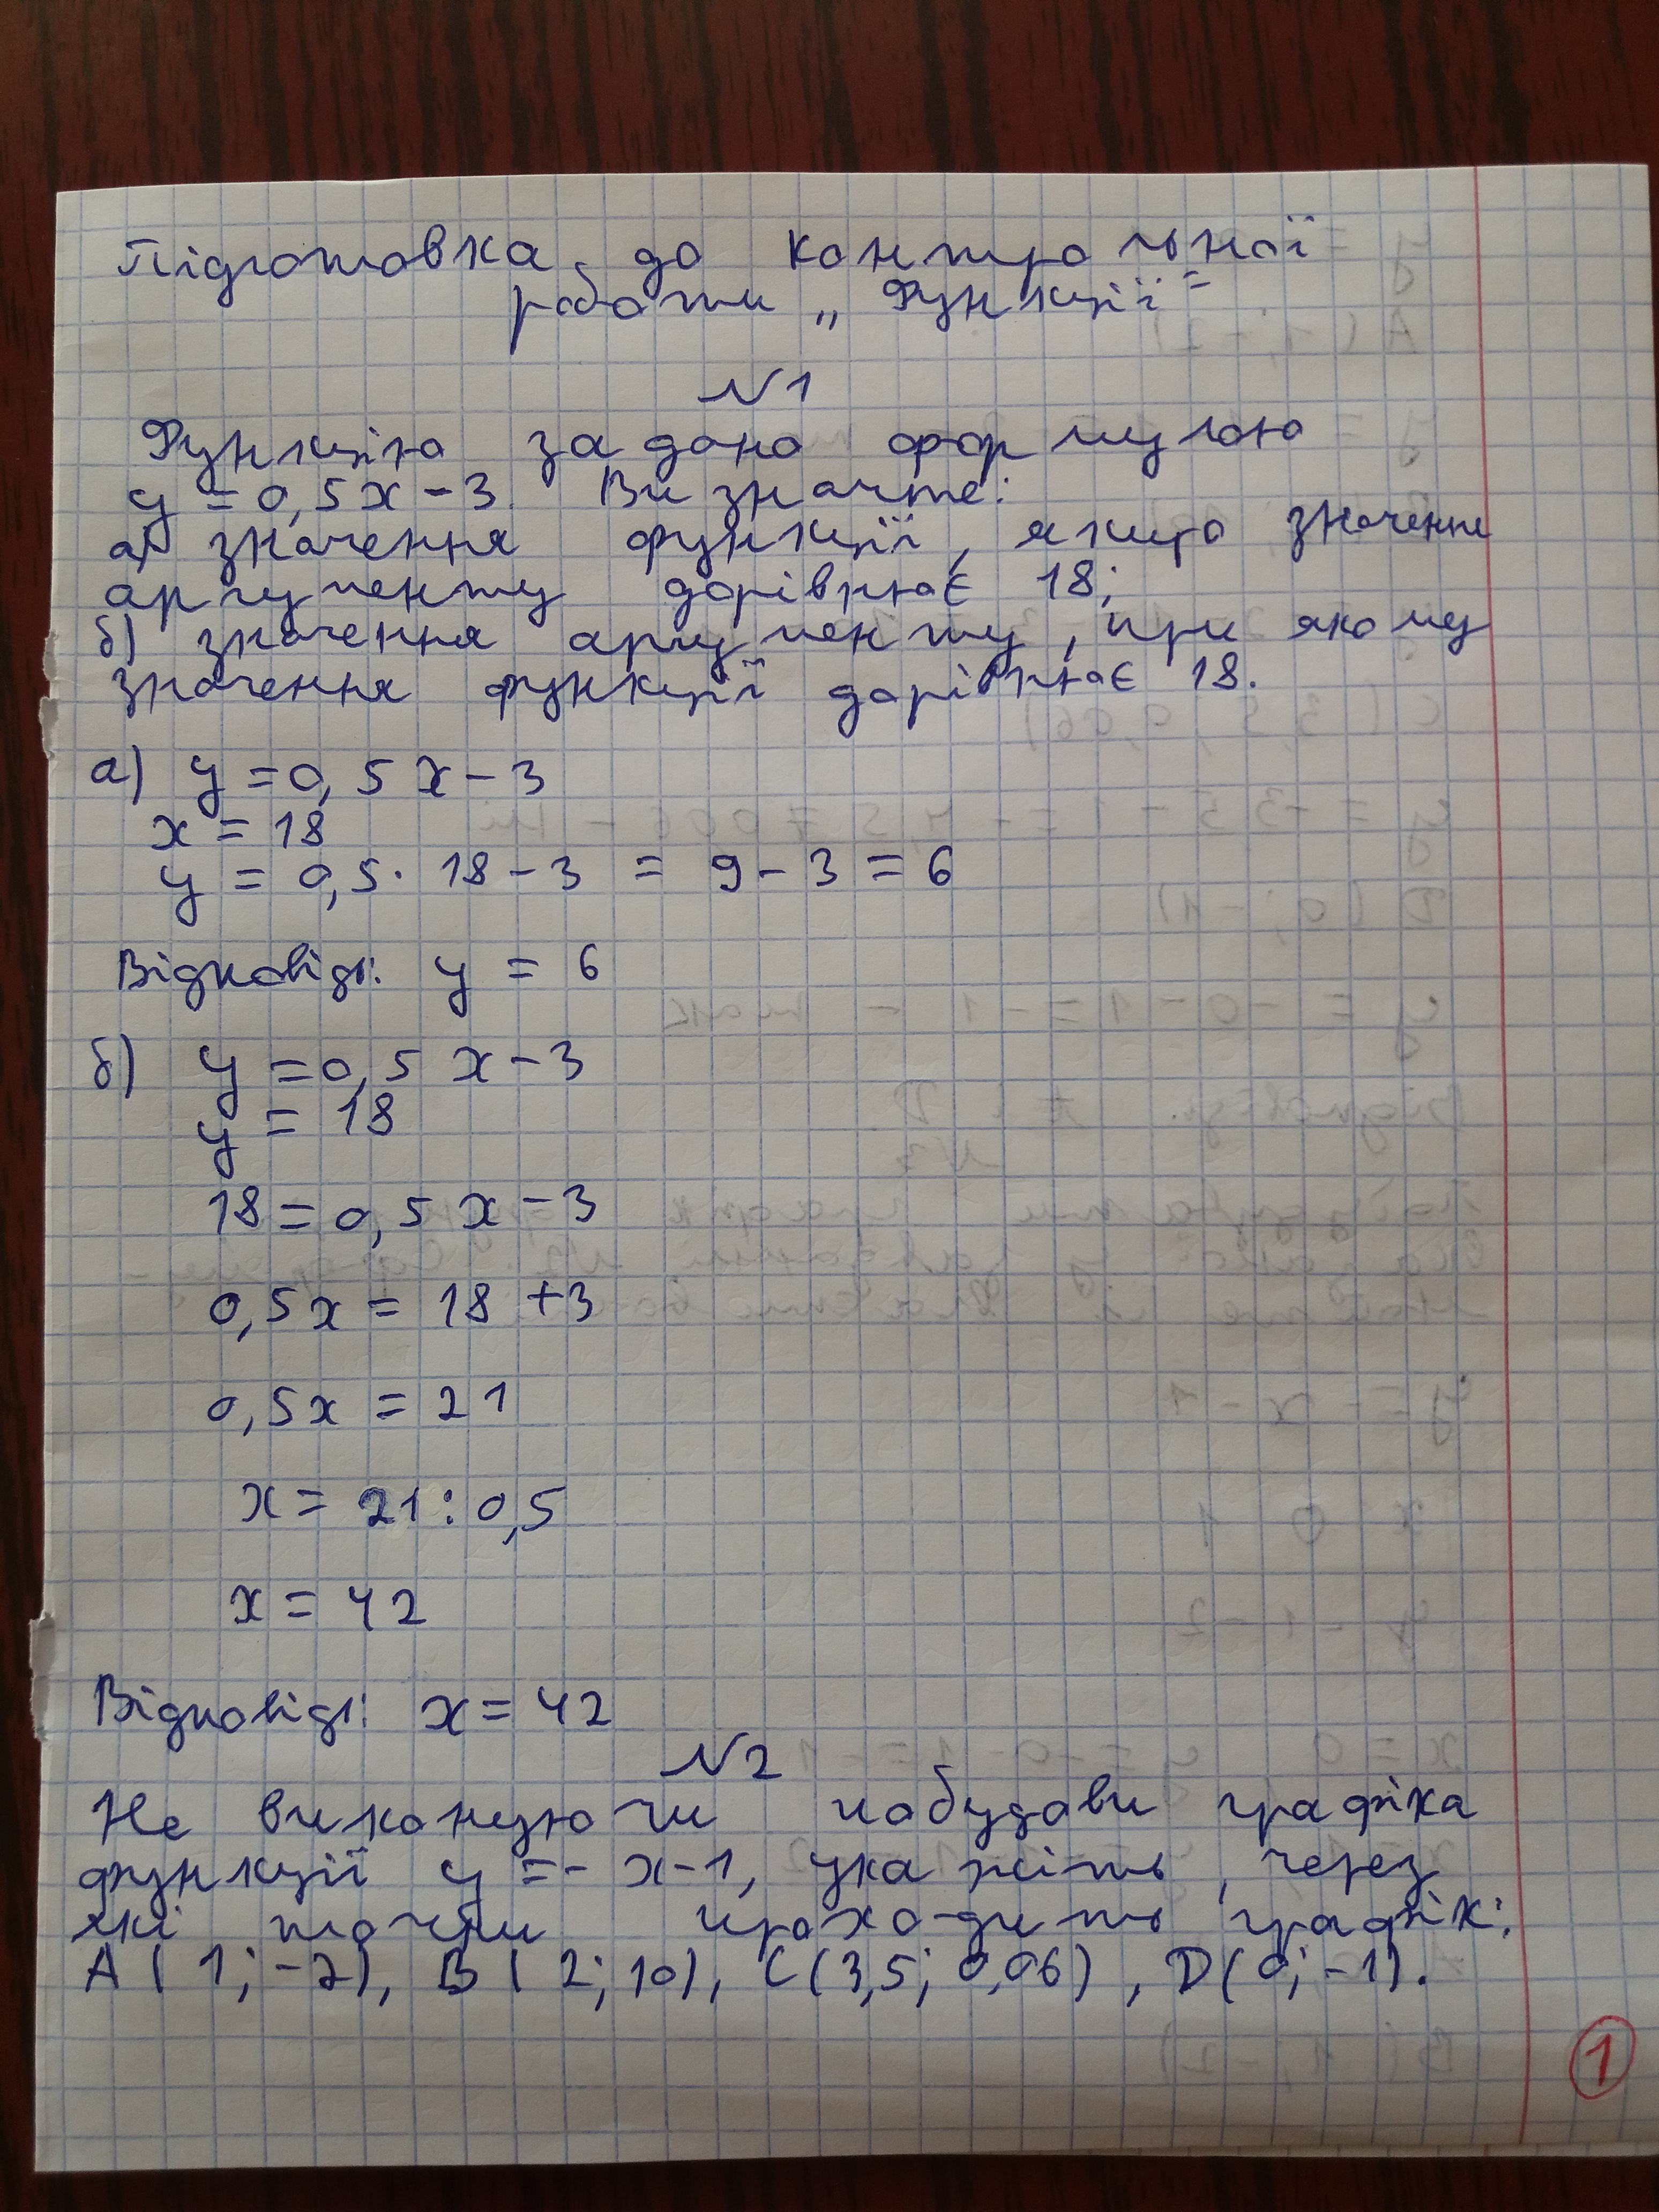 Підготовка до контрольної
роботи „Функції"
№1
Функцію задано формулою
y = 0,5x - 3. Визначте:
а) значення функції, якщо значення
аргументу дорівнює 18;
б) значення аргументу, при якому
значення функції дорівнює 18.
а) y = 0,5x - 3
x = 18
y = 0,5 · 18 - 3 = 9 - 3 = 6
Відповідь: y = 6
б) y = 0,5x - 3
y = 18
18 = 0,5x - 3
0,5x = 18 + 3
0,5x = 21
x = 21 : 0,5
x = 42
Відповідь: x = 42
№2
Не виконуючи побудови графіка
функції y = - x - 1, укажіть, через
які точки проходить графік:
A(1; -2), B(2; 10), C(3,5; 0,06), D(0; -1).
1